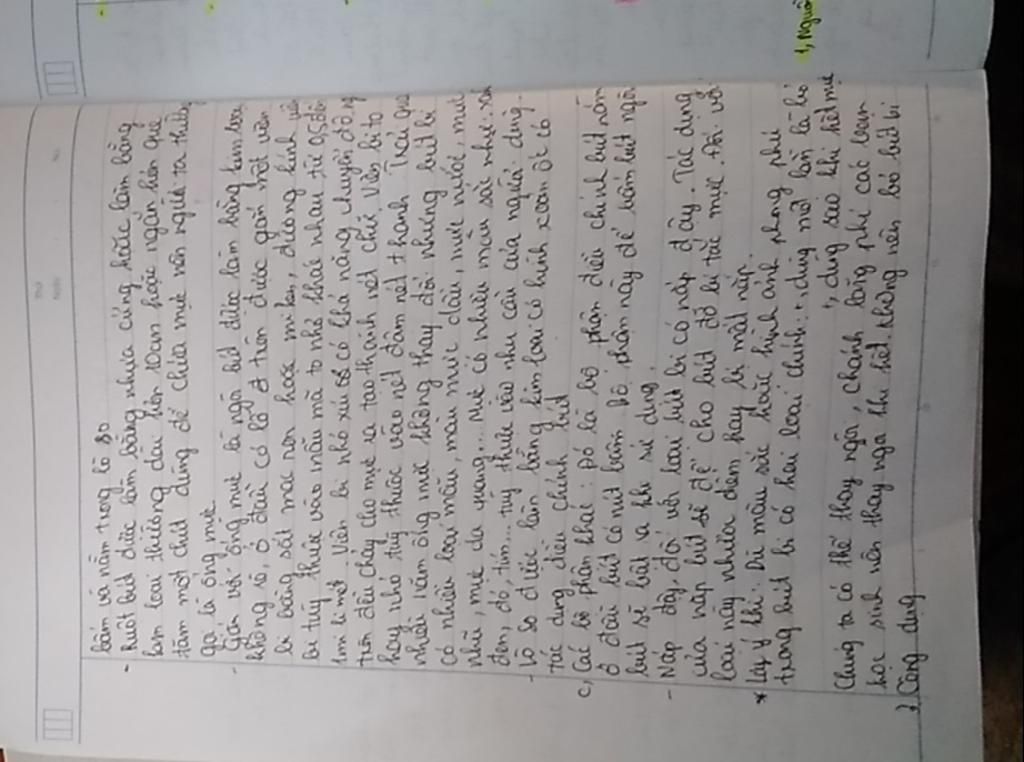 bấm và nằm trong lò so
- Ruột bút được làm bằng nhựa cũng hoặc làm bằng
kim loại thường dài hơn 10cm hoặc ngắn hơn que
tăm một chút dùng để chứa mực nên người ta thường
gọi là ống mực
- Gắn với ống mực là ngòi bút được làm bằng kim loại
không rỉ, ở đầu có lỗ ở trên được gắn một viên
bi bằng sắt mạ hoặc đường kính viên
bi tùy thuộc vào mẫu mã to nhỏ khác nhau, từ 0,5 đến
1mi li mét. Viên bi nhỏ xíu có khả năng chuyển động
tròn đều chảy cho mực ra tạo thành nét chữ. Viên bi to
hay nhỏ tùy thuộc vào nét đậm nét thanh. Trải qua
nhiều năm ống mực không thay đổi nhưng bút bi
có nhiều loại mẫu mãu mực dầu, mực nước, mực
nhũ, mực dạ quang... Mực có nhiều màu sắc như: xanh
đen, đỏ, tím... tùy thuộc vào nhu cầu của người dùng.
- Lò so được làm bằng kim loại có hình xoắn ốc có
tác dụng điều chỉnh bút
c, Các bộ phận khác: Đó là bộ phận điều chỉnh bút nằm
ở đầu bút có nút bấm bộ phận này để bấm bút ngòi
bút sẽ bật ra khi sử dụng.
- Nắp đậy, đối với loại bút bi có nắp đậy. Tác dụng
của nắp bút sẽ để cho bút đỡ bị tắc mực. Đối với
loại này nhược điểm hay bị mất nắp.
* Lưu ý thì: Dù màu sắc hoặc hình ảnh phong phú
trong bút bi có hai loại chính: + dùng một lần là bỏ
+, dùng sao khi hết mực
Chúng ta có thể thay ngòi, tránh lãng phí các bạn
học sinh nên thay ngòi khi hết. Không nên bỏ bút bi
2, Công dụng
1, Người